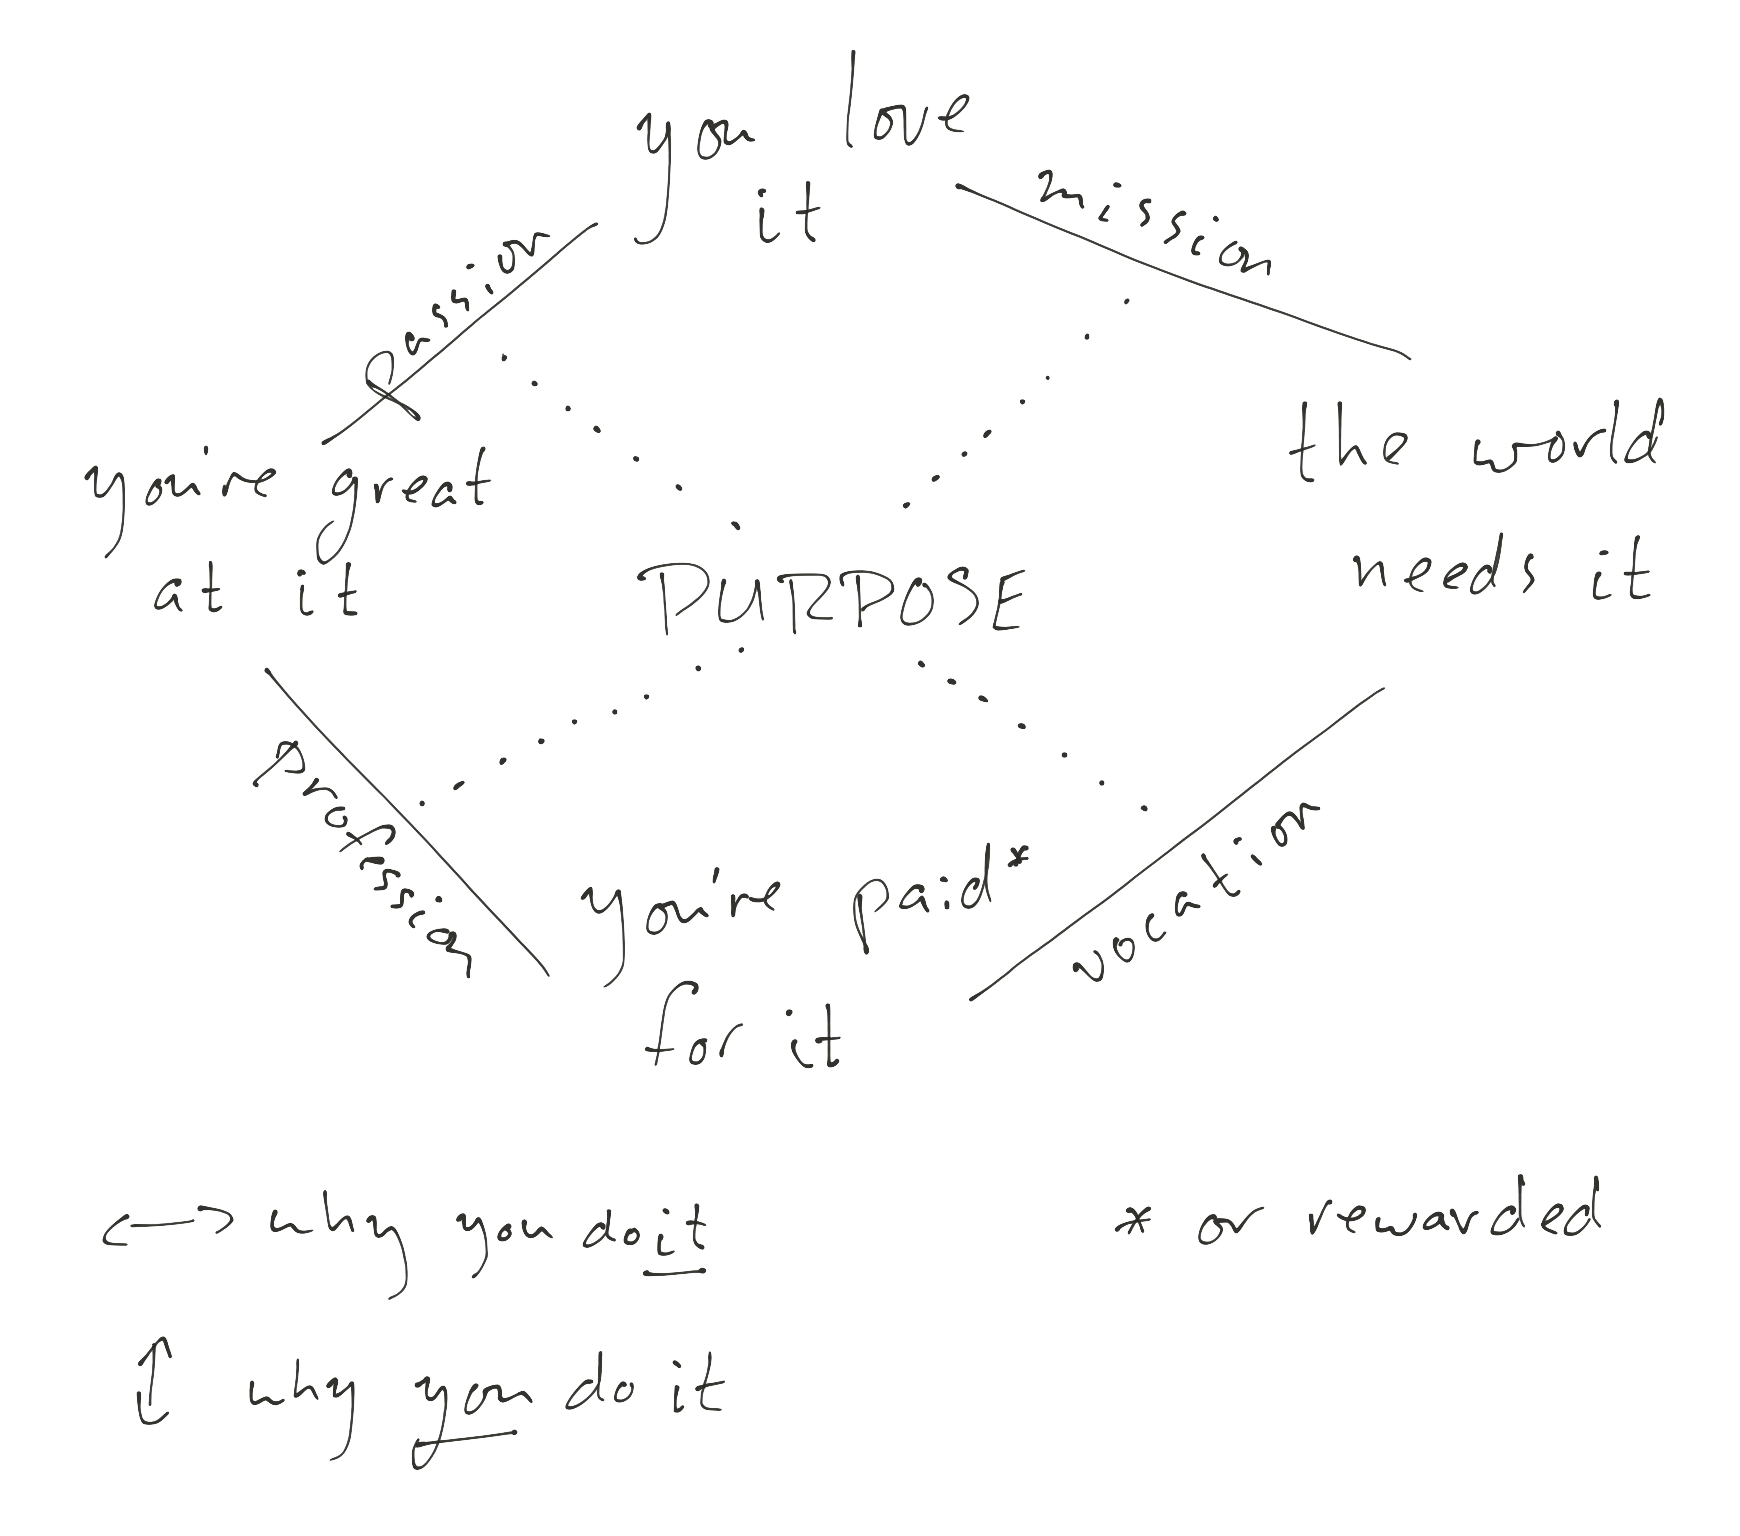 you love
it
mission
passion
you're great
at it
the world
needs it
PURPOSE
profession
you're paid*
for it
vocation
<-> why you do it
* or rewarded
↕ why you do it